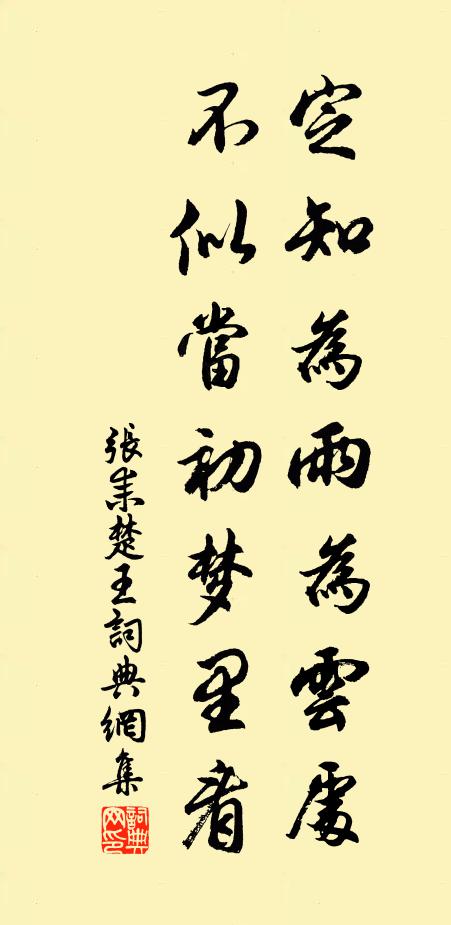 定知為雨為雲處
不似當初梦里看
張耒楚王詞典網集
詞典网印